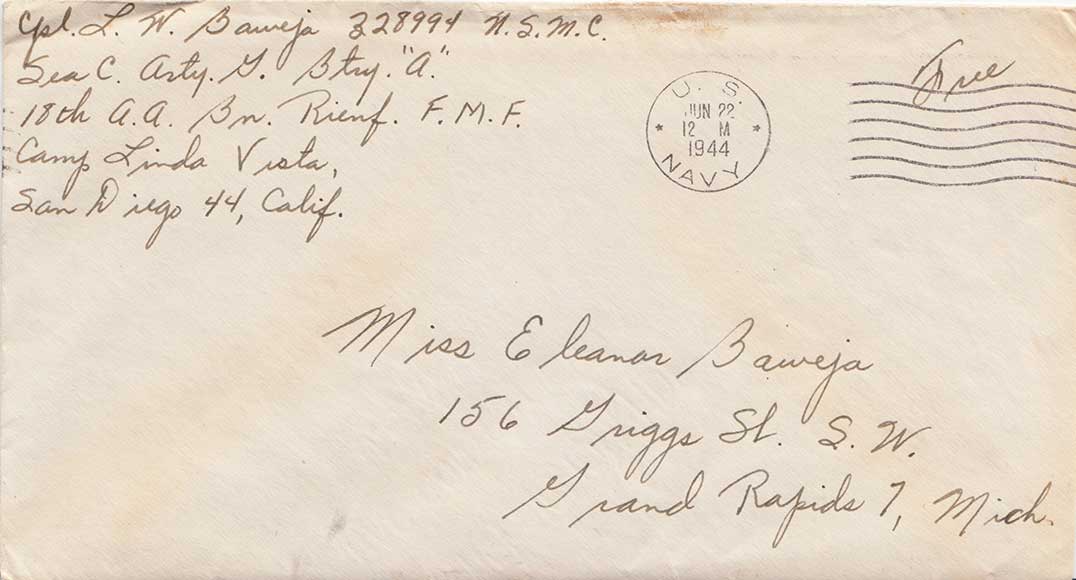 Cpl. L. W. Baweja 328994 U.S.M.C.
Sea C. Arty. G. Btry. "A".
18th A.A. Bn. Rienf. F.M.F.
Camp Linda Vista,
San Diego 44, Calif.
U. S. NAVY
JUN 22
12 M
1944
Free
Miss Eleanor Baweja
156 Griggs St. S.W.
Grand Rapids 7, Mich.